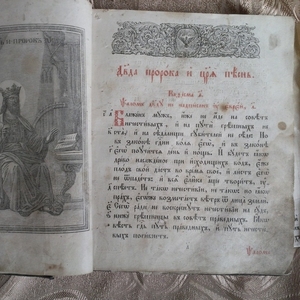 Дв҃да прⷪ҇рока и҆ цр҃ѧ̀ пѣ́снь.
Каѳі́сма а҃.
Ѱало́мъ дв҃дꙋ не надпи́санъ ᲂу҆ є҆врє́й, а҃.
Бл҃же́нъ мꙋ́жъ, и҆́же не и҆́де на совѣ́тъ
нечести́выхъ, и҆ на пꙋтѝ грѣ́шныхъ не
ста̀, и҆ на сѣда́лищи гꙋби́телей не сѣ́де. Но
въ зако́нѣ гдⷭ҇ни во́лѧ є҆гѡ̀, и҆ въ зако́нѣ
є҆гѡ̀ поꙋчи́тсѧ де́нь и҆ но́щь. И҆ бꙋ́детъ ꙗ҆́кѡ
дре́во насажде́ное при и҆схо́дищихъ во́дъ, є҆́же
пло́дъ сво́й да́стъ во вре́мѧ своѐ, и҆ ли́стъ є҆гѡ̀
не ѿпаде́тъ: и҆ всѧ̑ є҆ли̑ка а҆́ще твори́тъ, ᲂу҆-
спѣ́етъ. Не та́кѡ нечести́вїи, не та́кѡ: но ꙗ҆́кѡ
пра́хъ, є҆го́же возмета́етъ вѣ́тръ ѿ лица̀ землѝ.
Сегѡ̀ ра́ди не воскре́снꙋтъ нечести́вїи на сꙋ́дъ,
нижѐ грѣ̑шницы въ совѣ́тъ пра́ведныхъ. Ꙗ҆́кѡ
вѣ́сть гдⷭ҇ь пꙋ́ть пра́ведныхъ, и҆ пꙋ́ть нечести́-
выхъ поги́бнетъ.
Ѱало́мъ